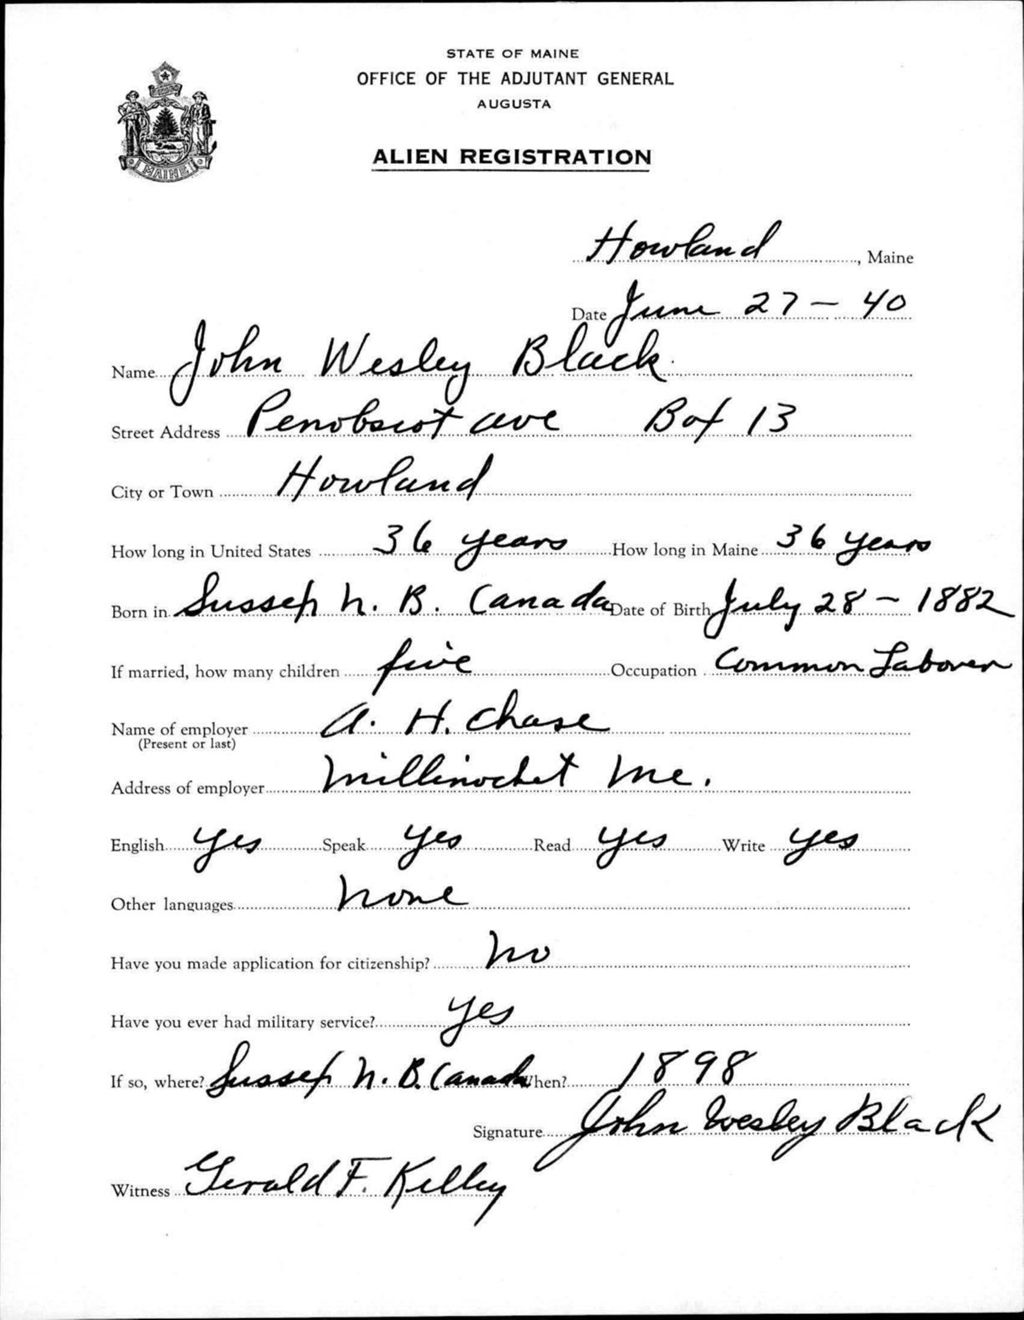 STATE OF MAINE
OFFICE OF THE ADJUTANT GENERAL
AUGUSTA
ALIEN REGISTRATION
MAINE
Howland, Maine
Date June 27 - 40
Name John Wesley Black
Street Address Penobscot ave Box 13
City or Town Howland
How long in United States 36 years How long in Maine 36 years
Born in Sussex N. B. Canada Date of Birth July 28 - 1882
If married, how many children five Occupation Common Laborer
Name of employer A. H. Chase
(Present or last)
Address of employer Millinocket Me.
English yes Speak yes Read yes Write yes
Other languages none
Have you made application for citizenship? No
Have you ever had military service? yes
If so, where? Sussex N. B. Canada When? 1898
Signature John Wesley Black
Witness Gerald F. Kelley